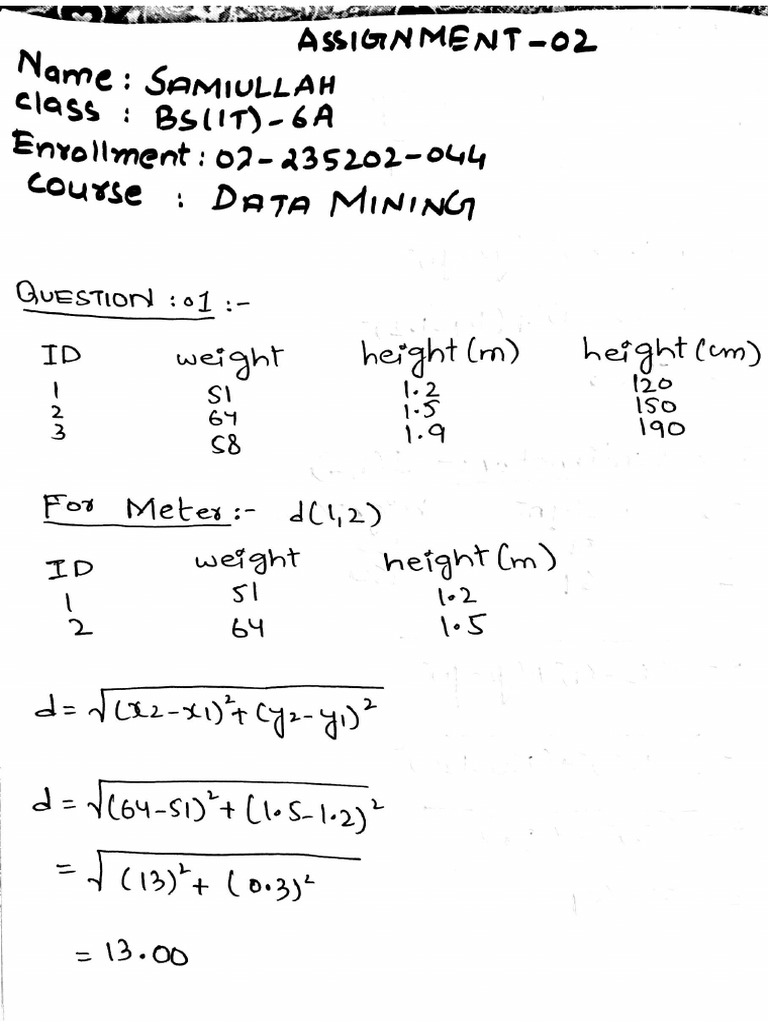 ASSIGNMENT-02
Name: SAMIULLAH
class : BS(IT)-6A
Enrollment: 02-235202-044
course : DATA MINING
QUESTION :01 :-
ID weight height(m) height(cm)
1 51 1.2 120
2 64 1.5 150
3 58 1.9 190
For Meter:- d(1,2)
ID weight height(m)
1 51 1.2
2 64 1.5
d = √(x2-x1)²+(y2-y1)²
d = √(64-51)²+(1.5-1.2)²
= √(13)²+(0.3)²
= 13.00